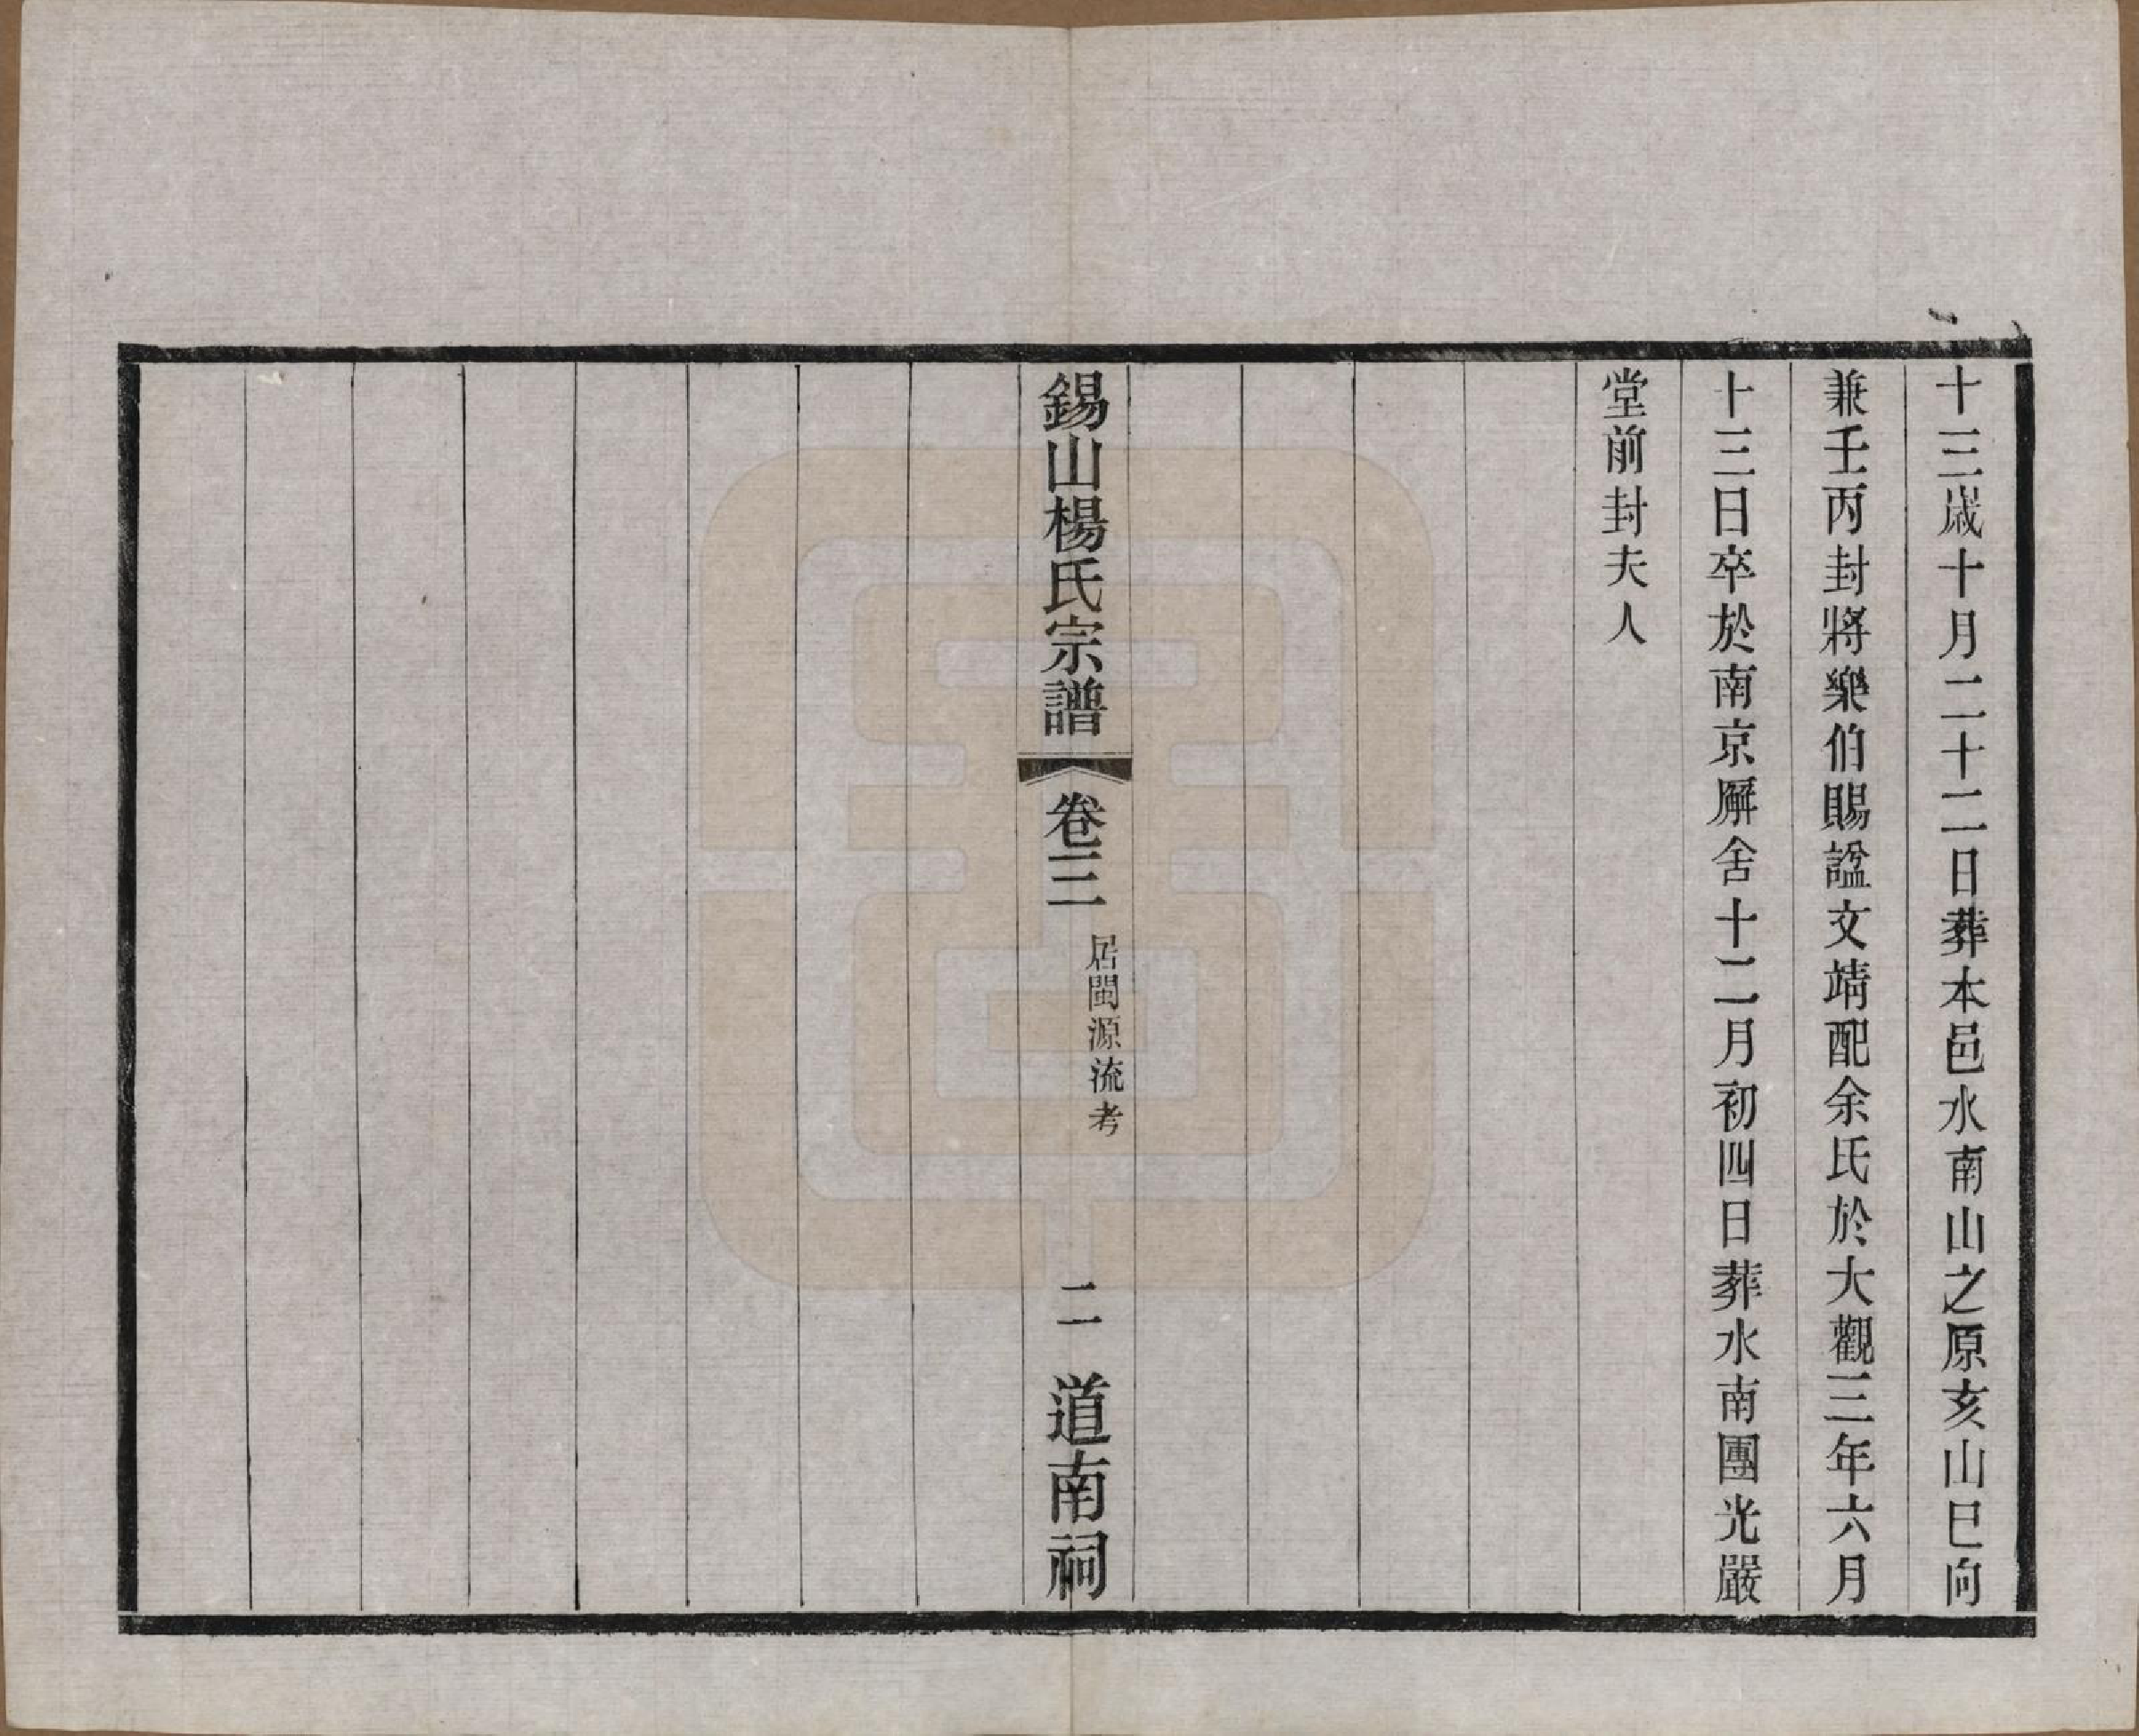 十三歲十月二十二日葬本邑水南山之原亥山巳向
兼壬丙封將樂伯賜諡文靖配余氏於大觀三年六月
十三日卒於南京廨舍十二月初四日葬水南團光嚴
堂前封夫人
錫山楊氏宗譜 卷三 居閩源流考 二 道南祠